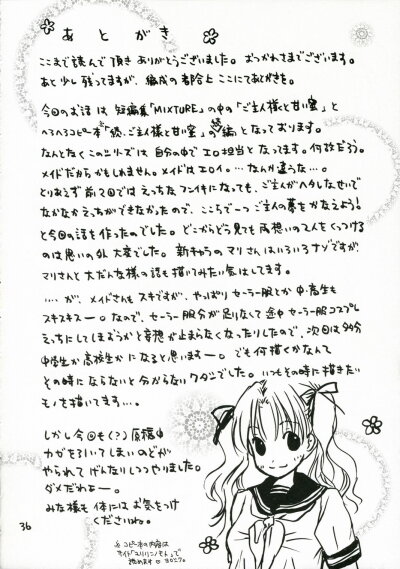 あとがき
ここまで読んで頂きありがとうございました。おつかれさまでございます。
あと少し残ってますが、編成の都合上ここにてあとがきを。
今回のお話は 短編集「MIXTURE」の中の「ご主人様と甘い蜜」と
へろへろコピー本「続・ご主人様と甘い蜜」の 編となっております。
なんとなくこのシリーズは自分の中でエロ担当となってます。何故だろう。
メイドだからかもしれません。メイドはエロイ。…なんか違うな…。
とりあえず前2回ではえっちなフンイキになっても、ご主人がヘタレなせいで
なかなかえっちができなかったので、ここらで一つご主人の夢をかなえよう!
と今回の話を作ったのでした。どこからどう見ても両想いの二人をくっつける
のは思いの外大変でした。新キャラのマリさんはいろいろナゾですが、
マリさんと大だんな様の話も描いてみたい気はしてます。
….が、メイドさんもスキですが、やっぱりセーラー服とか中・高生も
スキスキスー。なので、セーラー服分が足りなくて途中セーラー服コスプレ
えっちにしてしまおうかと妄想が止まらなくなったりしたので、次回は多分
中学生か高校生かになると思いますー。でも何描くかなんて
その時にならないと分からないワタシでした。いつもその時に描きたい
モノを描いてます…。
しかし今回も(?)原稿中
カゼをひいてしまいのどが
やられてげんなりしつつやりました。
ダメだわよー。
みな様も体にはお気をつけ
くださいね。
※コピー本の内容は
サイト「 」で
読めます ヨロシク。
36